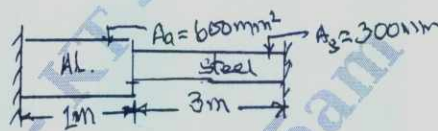 Aa=600mm² As=300mm
AL. Steel
1m 3m